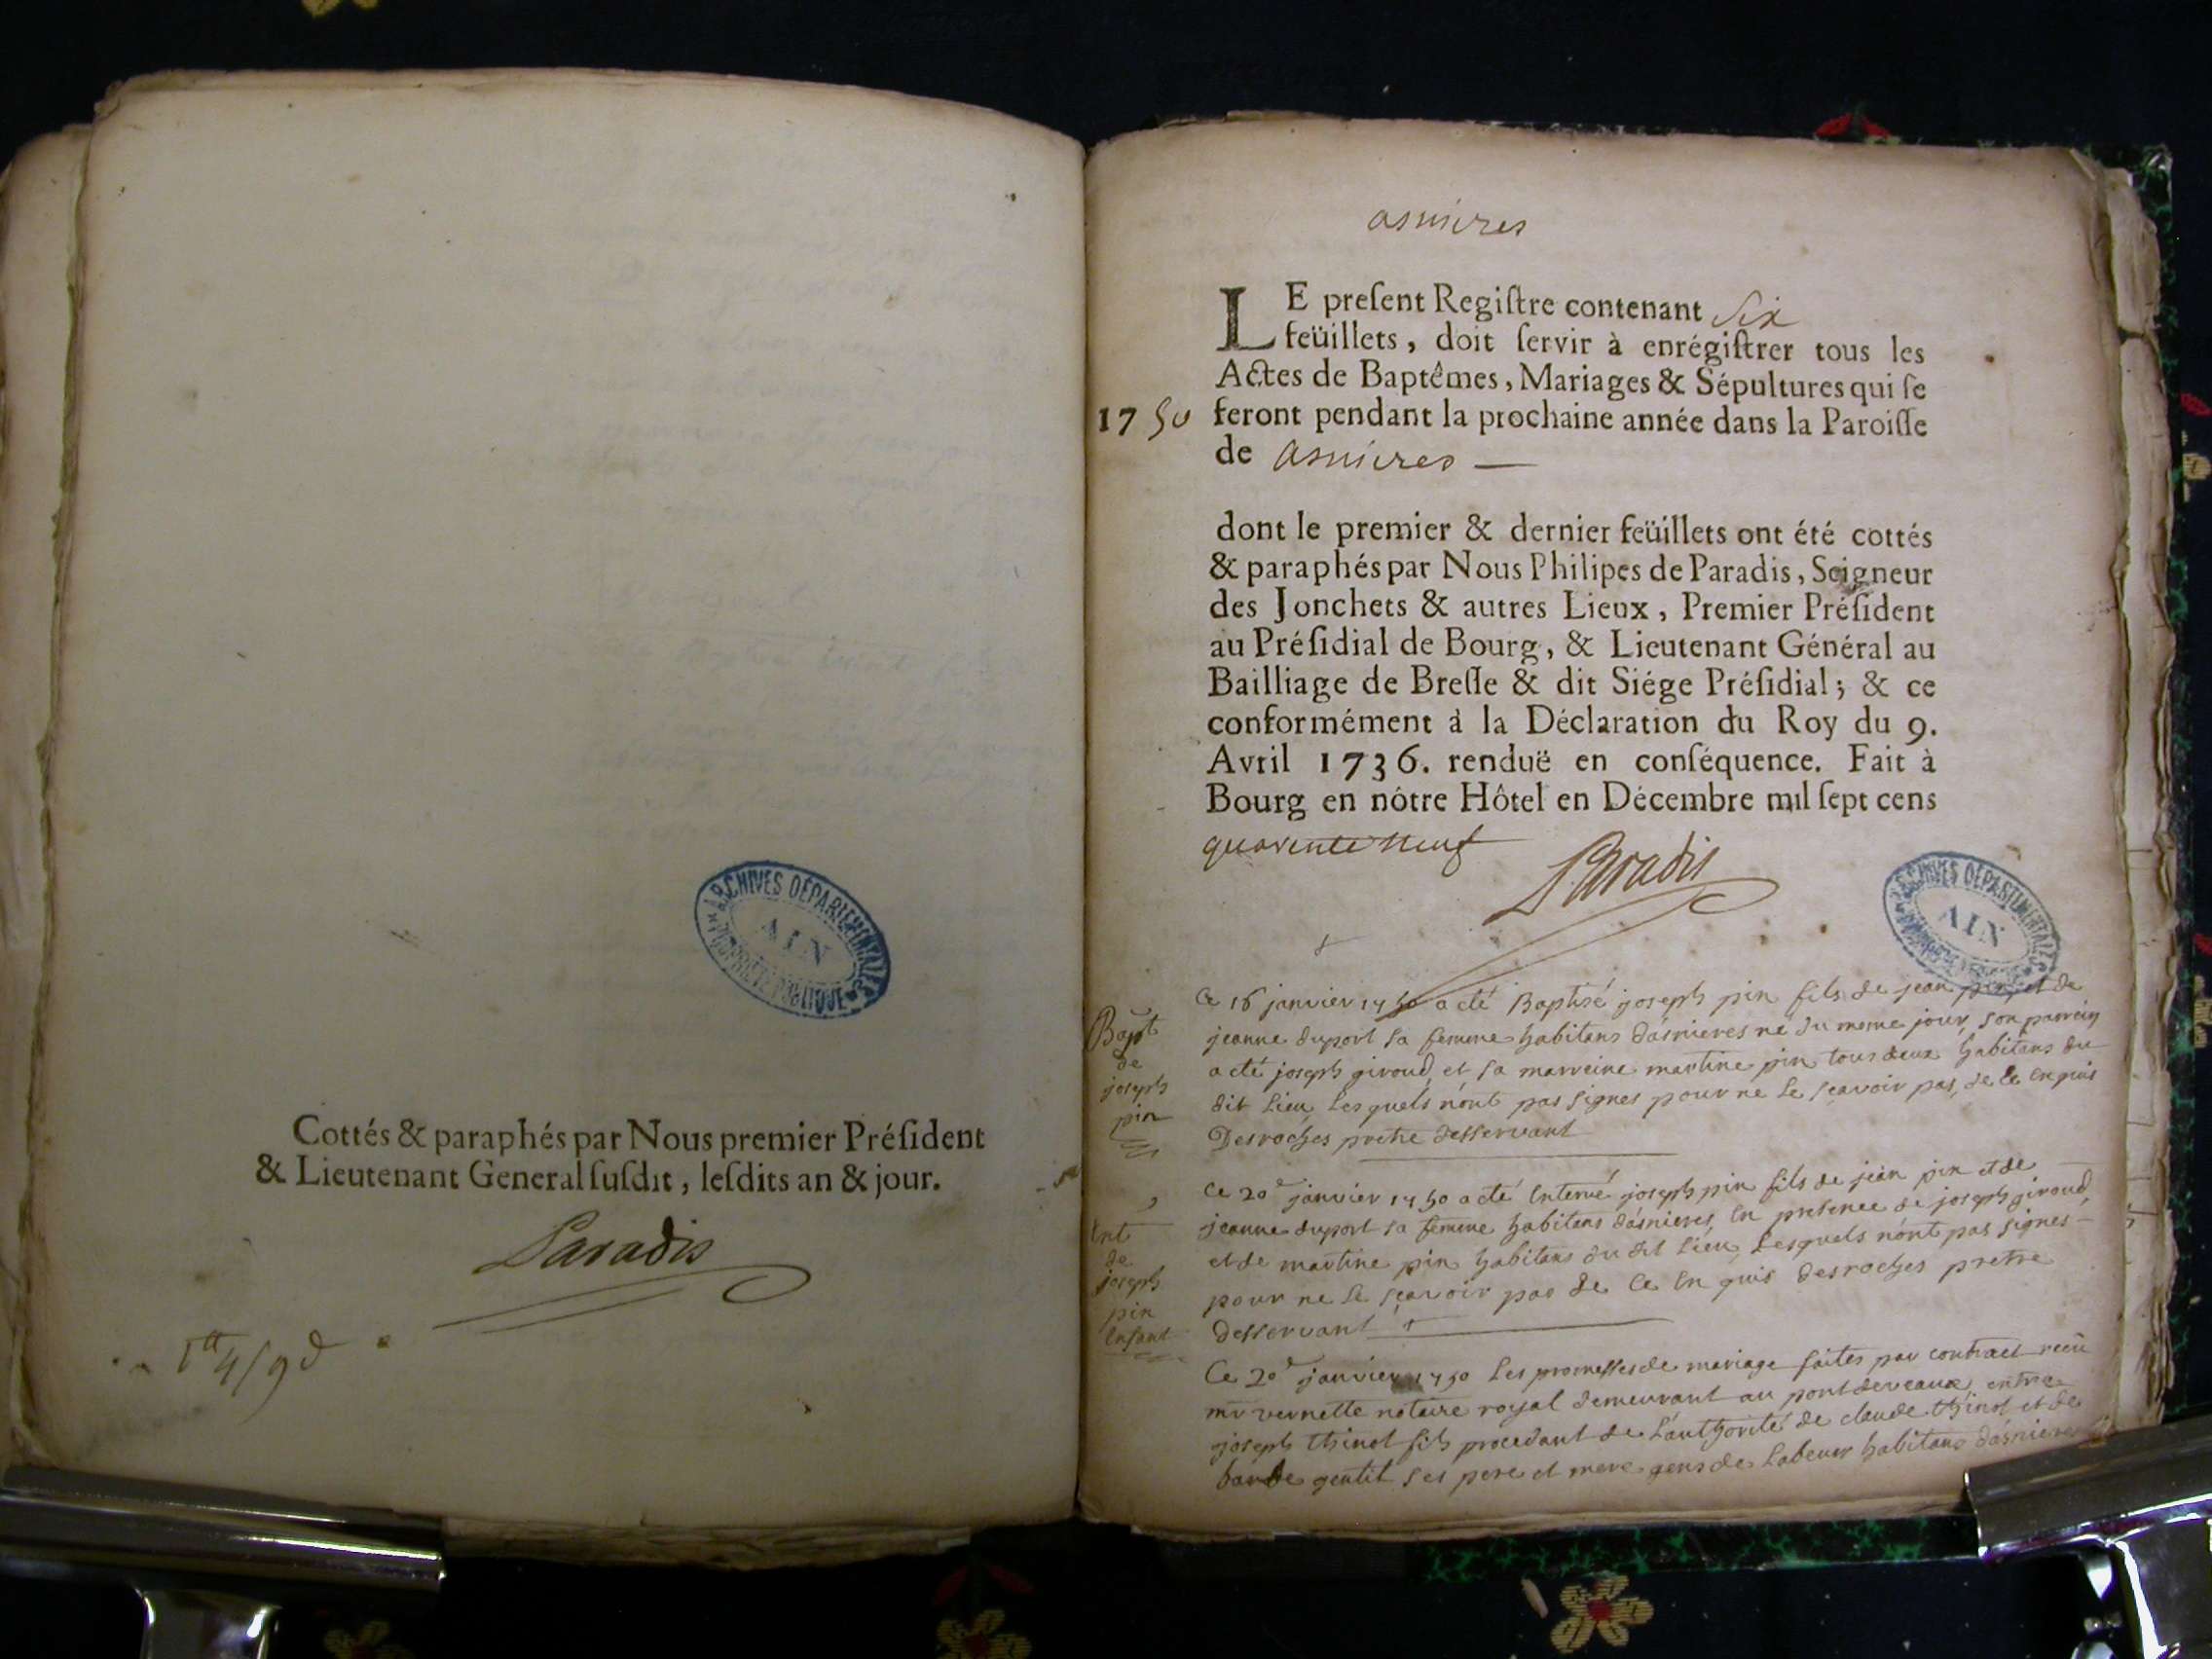 Cottés & paraphés par Nous premier Préſident
& Lieutenant General ſuſdit, leſdits an & jour.
Paradis
ARCHIVES DÉPARTEMENTALES
AIN
PROPRIÉTÉ PUBLIQUE
asnieres
LE preſent Regiſtre contenant Six
feüillets, doit ſervir à enrégiſtrer tous les
Actes de Baptêmes, Mariages & Sépultures qui ſe
1750 feront pendant la prochaine année dans la Paroiſſe
de asnieres —
dont le premier & dernier feüillets ont été cottés
& paraphés par Nous Philipes de Paradis, Seigneur
des Jonchets & autres Lieux, Premier Préſident
au Préſidial de Bourg, & Lieutenant Général au
Bailliage de Breſſe & dit Siége Préſidial; & ce
conformément à la Déclaration du Roy du 9.
Avril 1736. renduë en conſéquence. Fait à
Bourg en nôtre Hôtel en Décembre mil ſept cens
quarente neuf
Paradis
ARCHIVES DÉPARTEMENTALES
AIN
Bapt
de
joseph
pin
Ce 16 janvier 1750 a eté Baptisé joseph pin fils de jean pin, et de
jeanne duport sa femme habitans d'asnieres né du meme jour, son parrein
a eté joseph giroud, et sa marreine martine pin tous deux habitans du
dit lieu, lesquels n'ont pas signes pour ne le sçavoir pas, de ce enquis
Desroches pretre desservant
Ent
de
joseph
pin
enfant
Ce 20e janvier 1750 a eté enterré joseph pin fils de jean pin et de
jeanne duport sa femme habitans d'asnieres, en presence de joseph giroud,
et de martine pin habitans du dit lieu, lesquels n'ont pas signes
pour ne le sçavoir pas de ce en quis desroches pretre
desservant
Ce 20e janvier 1750 les promesses de mariage faites par contract reçu
mr vernette notaire royal demeurant au pontdeveaux, entre
joseph thinot fils procedant de l'authorité de claude thinot et de
gentit ses pere et mere gens de labeur habitans d'asnieres